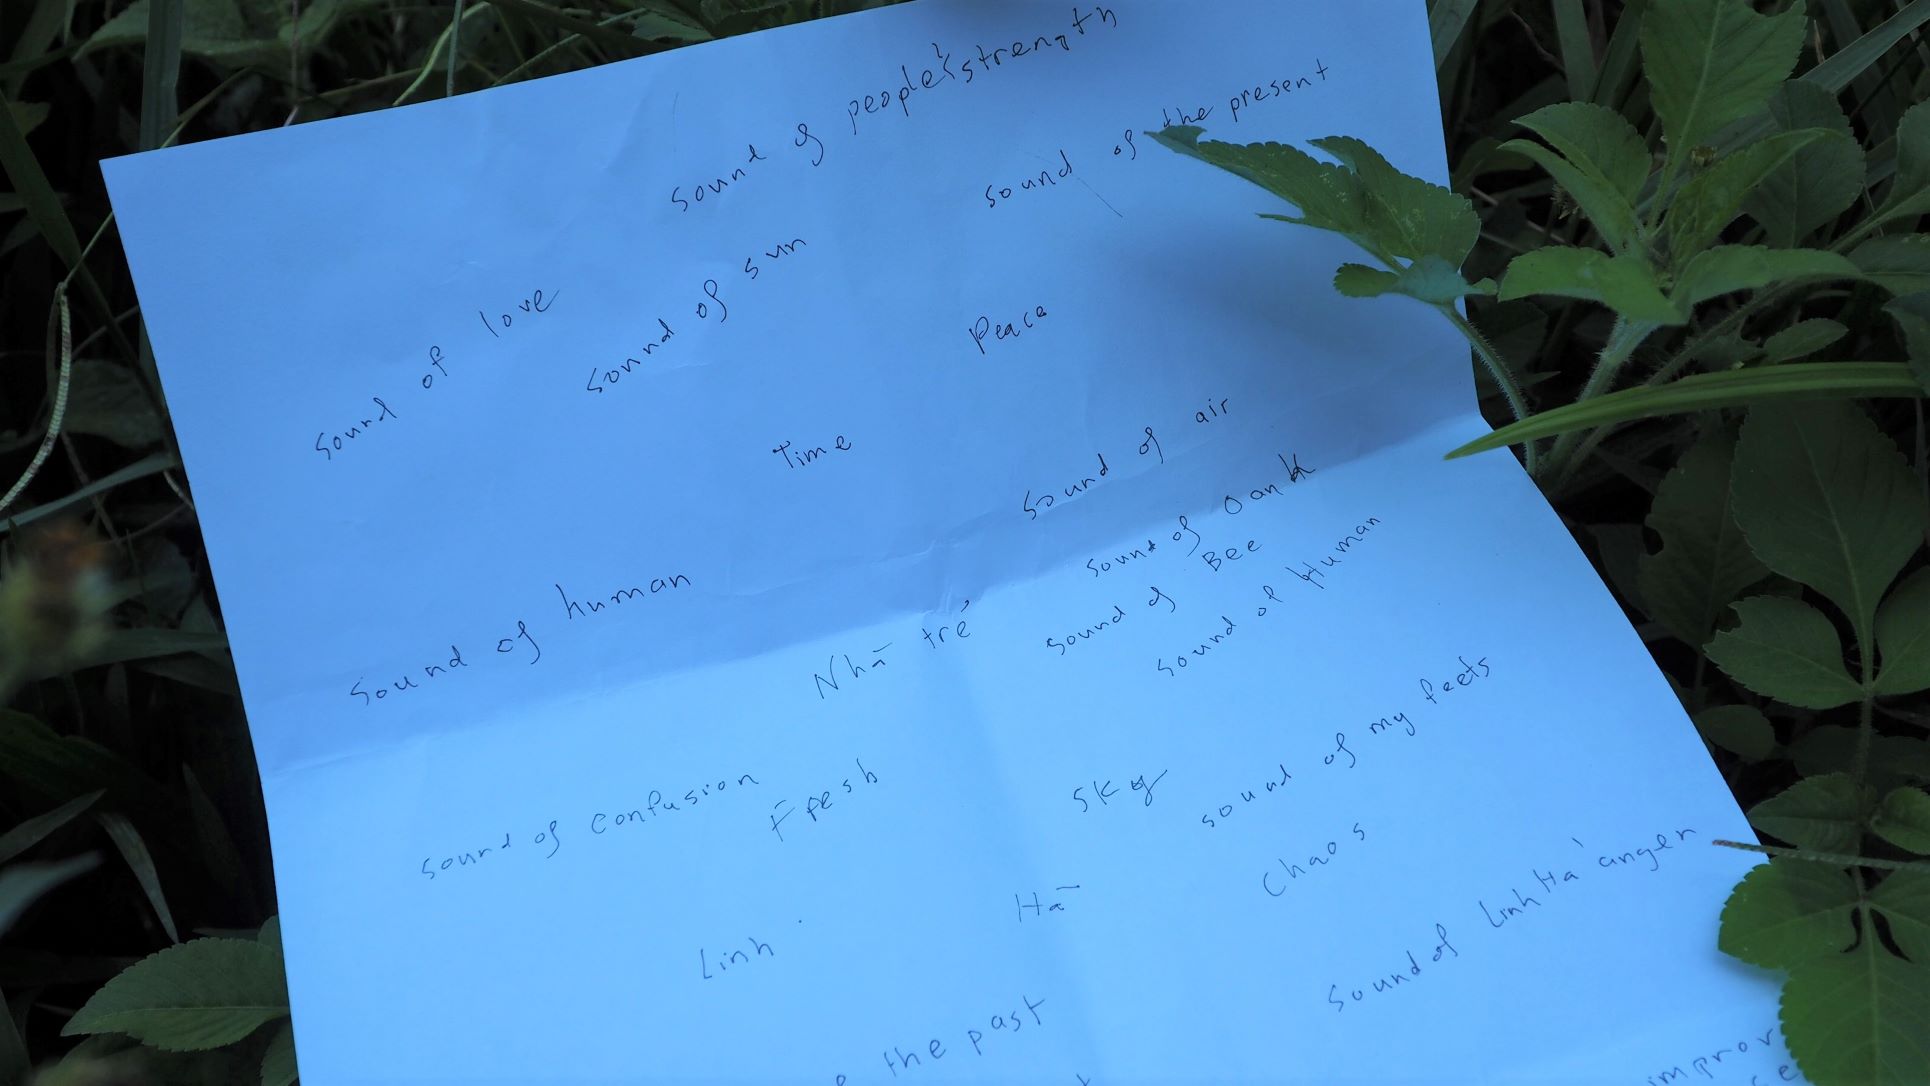 sound of people's strength
sound of the present
sound of love
sound of sun
Peace
Time
sound of air
sound of Oanh
sound of Bee
sound of Human
sound of human
Nhã trẻ
sound of my feets
sound of confusion
Fresh
Sky
Chaos
Hà
Linh
sound of Linh Hà anger
the past
improv